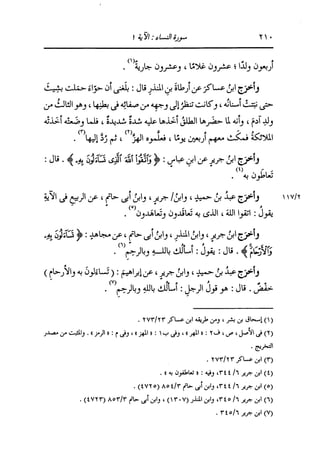 ٢١٠ سورة النساء : الآية ١
أربعون ولدًا ؛ عشرون غلامًا ، وعشرون جارية(١) .
وأخرج ابنُ عساكرَ عن أرطاةَ بنِ المنذرِ قال : بلَغنى أن حوَّاءَ حمَلت بشِيثَ
حتى نبَتت أسنانُه ، وكانت تنظرُ إلى وجهِه من صفائِه فى بطنِها ، وهو الثالثُ من
ولدِ آدمَ ، وأنه لما حضَرها الطلقُ أخذها عليه شدةٌ شديدةٌ ، فلما وضَعتْه أخَذتْه
الملائكةُ فمكَث معهم أربعين يومًا ، فعلَّموه الهزَّ(٢) ، ثم رُدَّ إليها(٣) .
وأخرَج ابنُ جريرٍ عن ابنِ عباسٍ : ﴿ وَاتَّقُوا اللَّهَ الَّذِى تَسَاءَلُونَ بِهِ ﴾ . قال :
تعاطَون به(٤) .
١١٧/٢ وأخرَج عبدُ بنُ حميدٍ ، وابنُ/ جريرٍ ، وابنُ أبى حاتمٍ ، عن الربيعِ فى الآيةِ
يقولُ : اتقوا اللهَ ، الذى به تعاقَدون وتعاهَدون(٥) .
وأخرَج ابنُ جريرٍ ، وابنُ المنذرِ ، وابنُ أبى حاتمٍ ، عن مجاهدٍ : ﴿ تَسَاءَلُونَ بِهِ
وَالْأَرْحَامَ ﴾ . قال : يقولُ : أسألُك باللهِ وبالرحمِ(٦) .
وأخرج عبدُ بنُ حميدٍ ، وابنُ جريرٍ ، عن إبراهيمَ : ( تساءلون به والأرحامِ )
خفْضٌ . قال : هو قولُ الرجلِ : أسألُك باللهِ وبالرحمِ(٧) .
(١) إسحاق بن بشر ، ومن طريقه ابن عساكر ٢٧٣/٢٣ .
(٢) فى الأصل ، ص ، ف٢ : « المهر » ، وفى ب١ : « المهز » ، وفى م : « الرمز » . والمثبت من مصدر
التخريج .
(٣) ابن عساكر ٢٧٣/٢٣ .
(٤) ابن جرير ٣٤٤/٦ ، وفيه : « تعاطفون به » .
(٥) ابن جرير ٣٤٤/٦ ، وابن أبى حاتم ٨٥٤/٣ (٤٧٢٥) .
(٦) ابن جرير ٣٤٥/٦ ، وابن المنذر (١٣٠٧) ، وابن أبى حاتم ٨٥٣/٣ (٤٧٢٣) .
(٧) ابن جرير ٣٤٥/٦ .